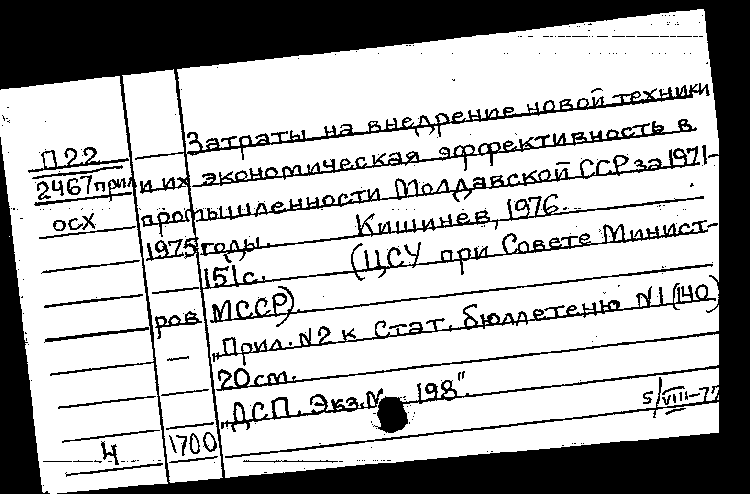 Затраты на внедрение новой техники
П22
2467прил
осх
и их экономическая эффективность в
промышленности Молдавской ССР за 1971-
1975 годы. Кишинев, 1976.
151 с. (ЦСУ при Совете Минист-
ров МССР).
— „Прил. N2 к Стат. бюллетеню N1 (140)
20 см.
„ДСП. Экз. N 198".
5/VIII-77
Ч 1700